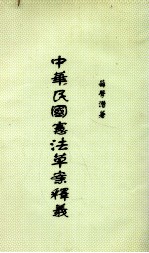 中華民國憲法草案釋義
孫學濂著